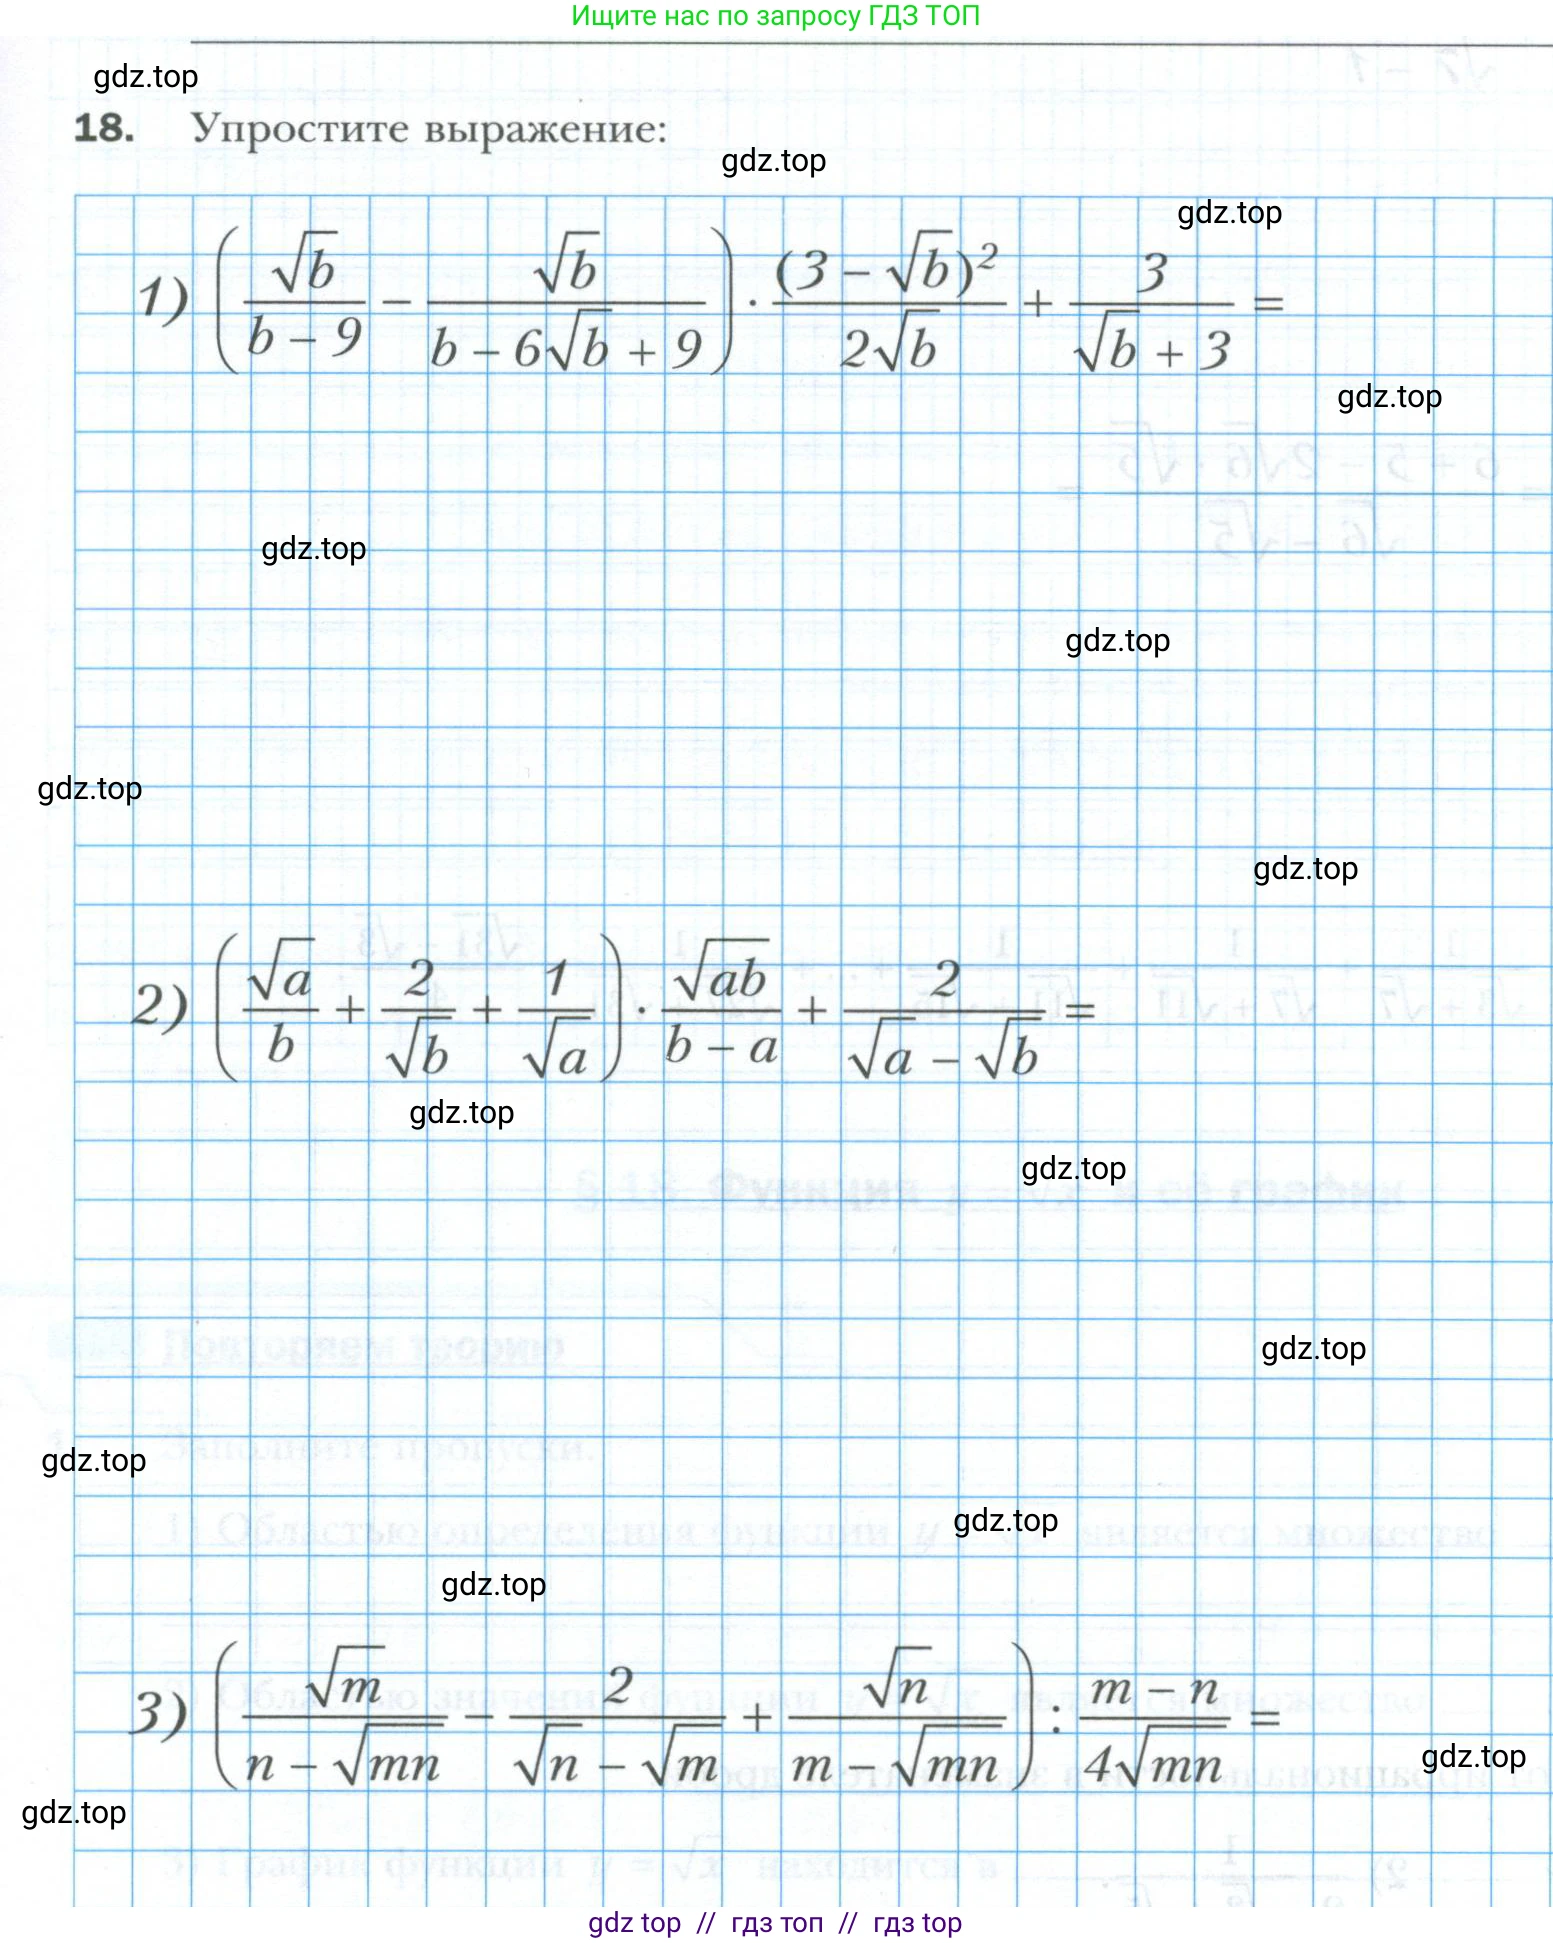 Ищите нас по запросу ГДЗ ТОП
gdz.top
18. Упростите выражение:
gdz.top
gdz.top
1) (√b / (b − 9) − √b / (b − 6√b + 9)) · (3 − √b)² / (2√b) + 3 / (√b + 3) =
gdz.top
gdz.top
gdz.top
gdz.top
gdz.top
2) (√a / b + 2 / √b + 1 / √a) · √ab / (b − a) + 2 / (√a − √b) =
gdz.top
gdz.top
gdz.top
gdz.top
gdz.top
gdz.top
3) (√m / (n − √mn) − 2 / (√n − √m) + √n / (m − √mn)) : (m − n) / (4√mn) =
gdz.top
gdz.top
gdz top // гдз топ // гдз top